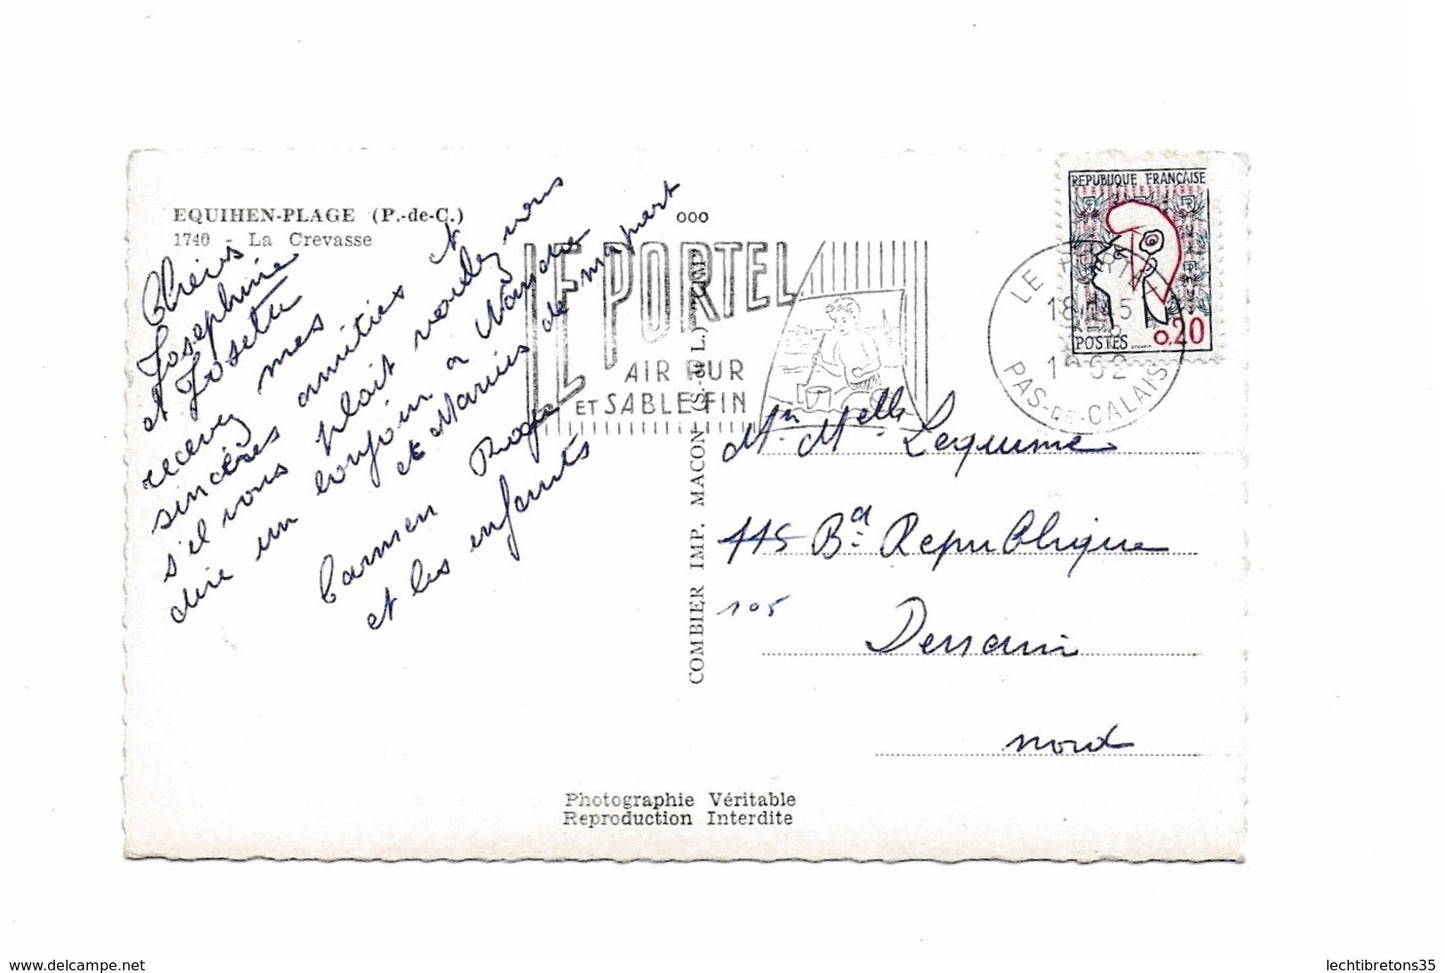 EQUIHEN-PLAGE (P.-de-C.)
1740 - La Crevasse
Chères
Josephine et
et Josette
recevez mes
sincères amitiés
s'il vous plait voulez vous
dire un bonjour a Nandre
et Marius de ma part
Carmen Roger
et les enfants
ooo
LE PORTEL
AIR PUR
ET SABLE FIN
COMBIER IMP. MACON (S.-de-L.)
REPUBLIQUE FRANÇAISE
POSTES
0.20
LE PORTEL
18H15
1962
PAS-DE-CALAIS
Mm Melle Lequime
115 Bd Republique
105
Denain
nord
Photographie Véritable
Reproduction Interdite
www.delcampe.net
lechtibretons35